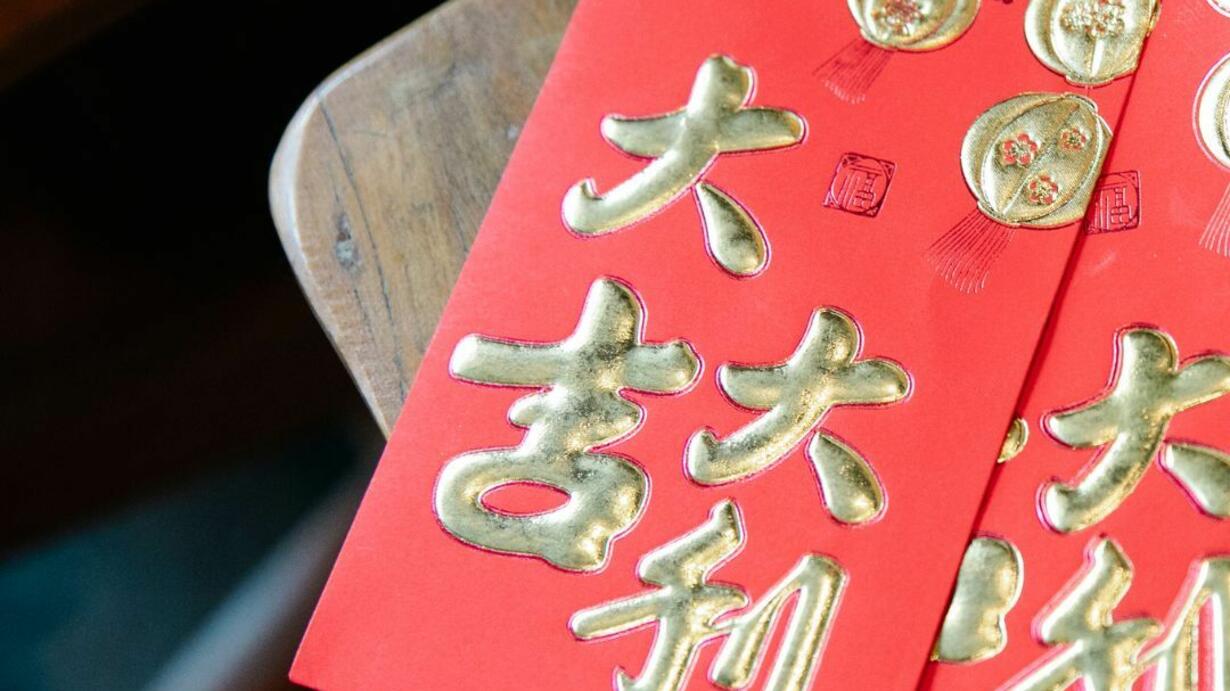 大吉
大利
福
福
大利